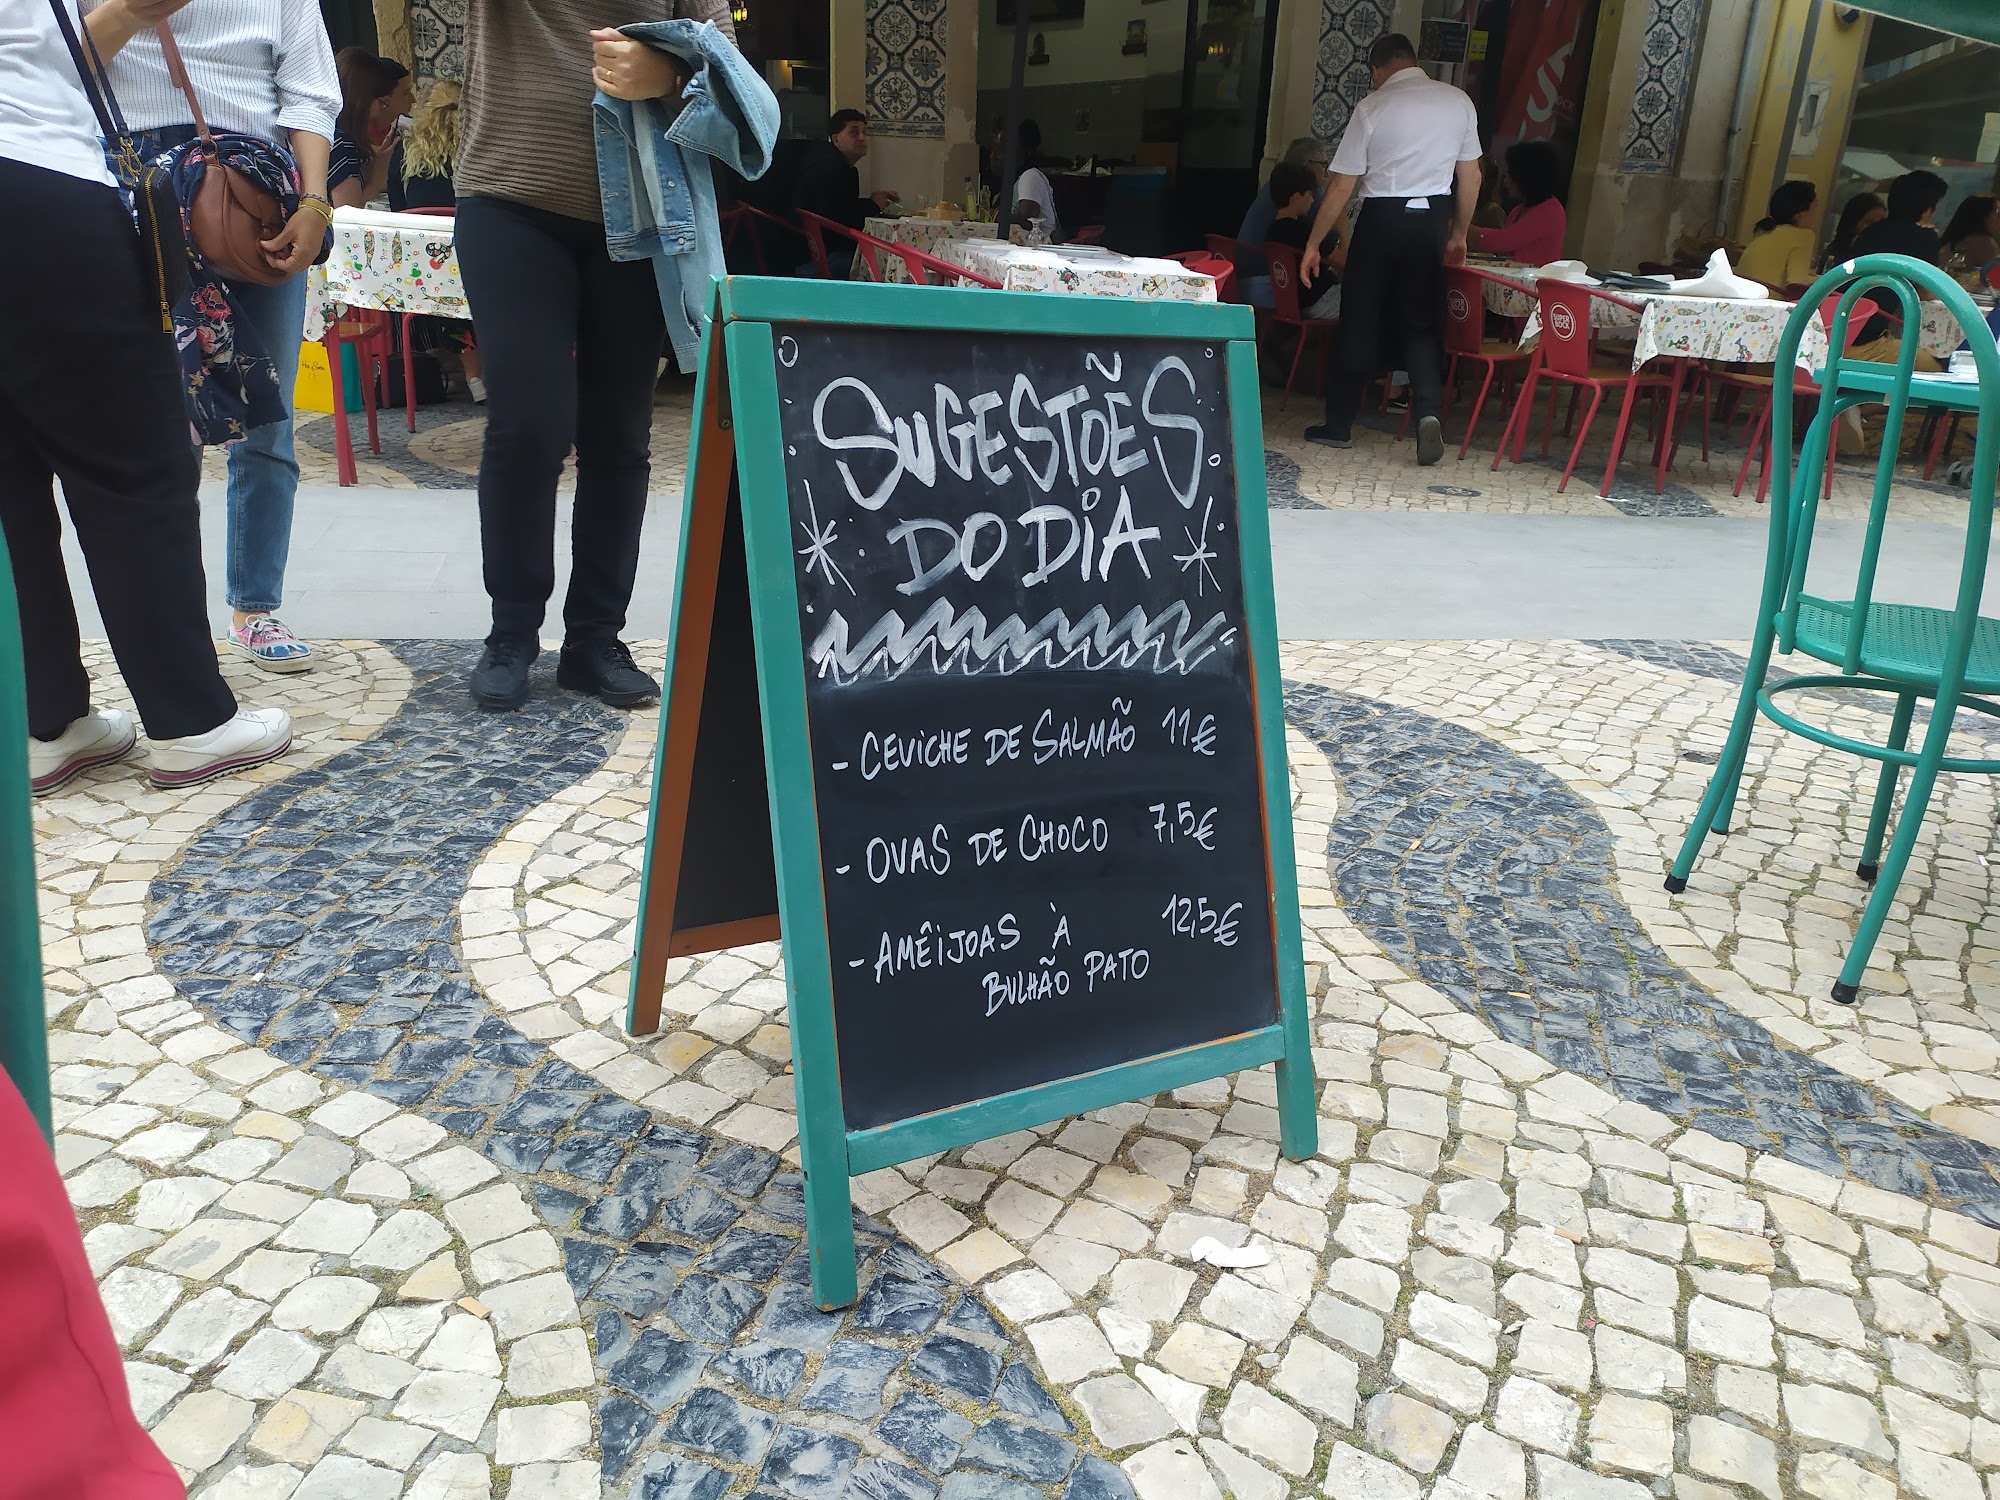 SUGESTÕES
DO DiA
- CEViCHE DE SALMÃO 11€
- OVAS DE CHOCO 7,5€
- AMÊiJOAS À 12,5€
BULHÃO PATO
SUPER
BOCK
SUPER
BOCK